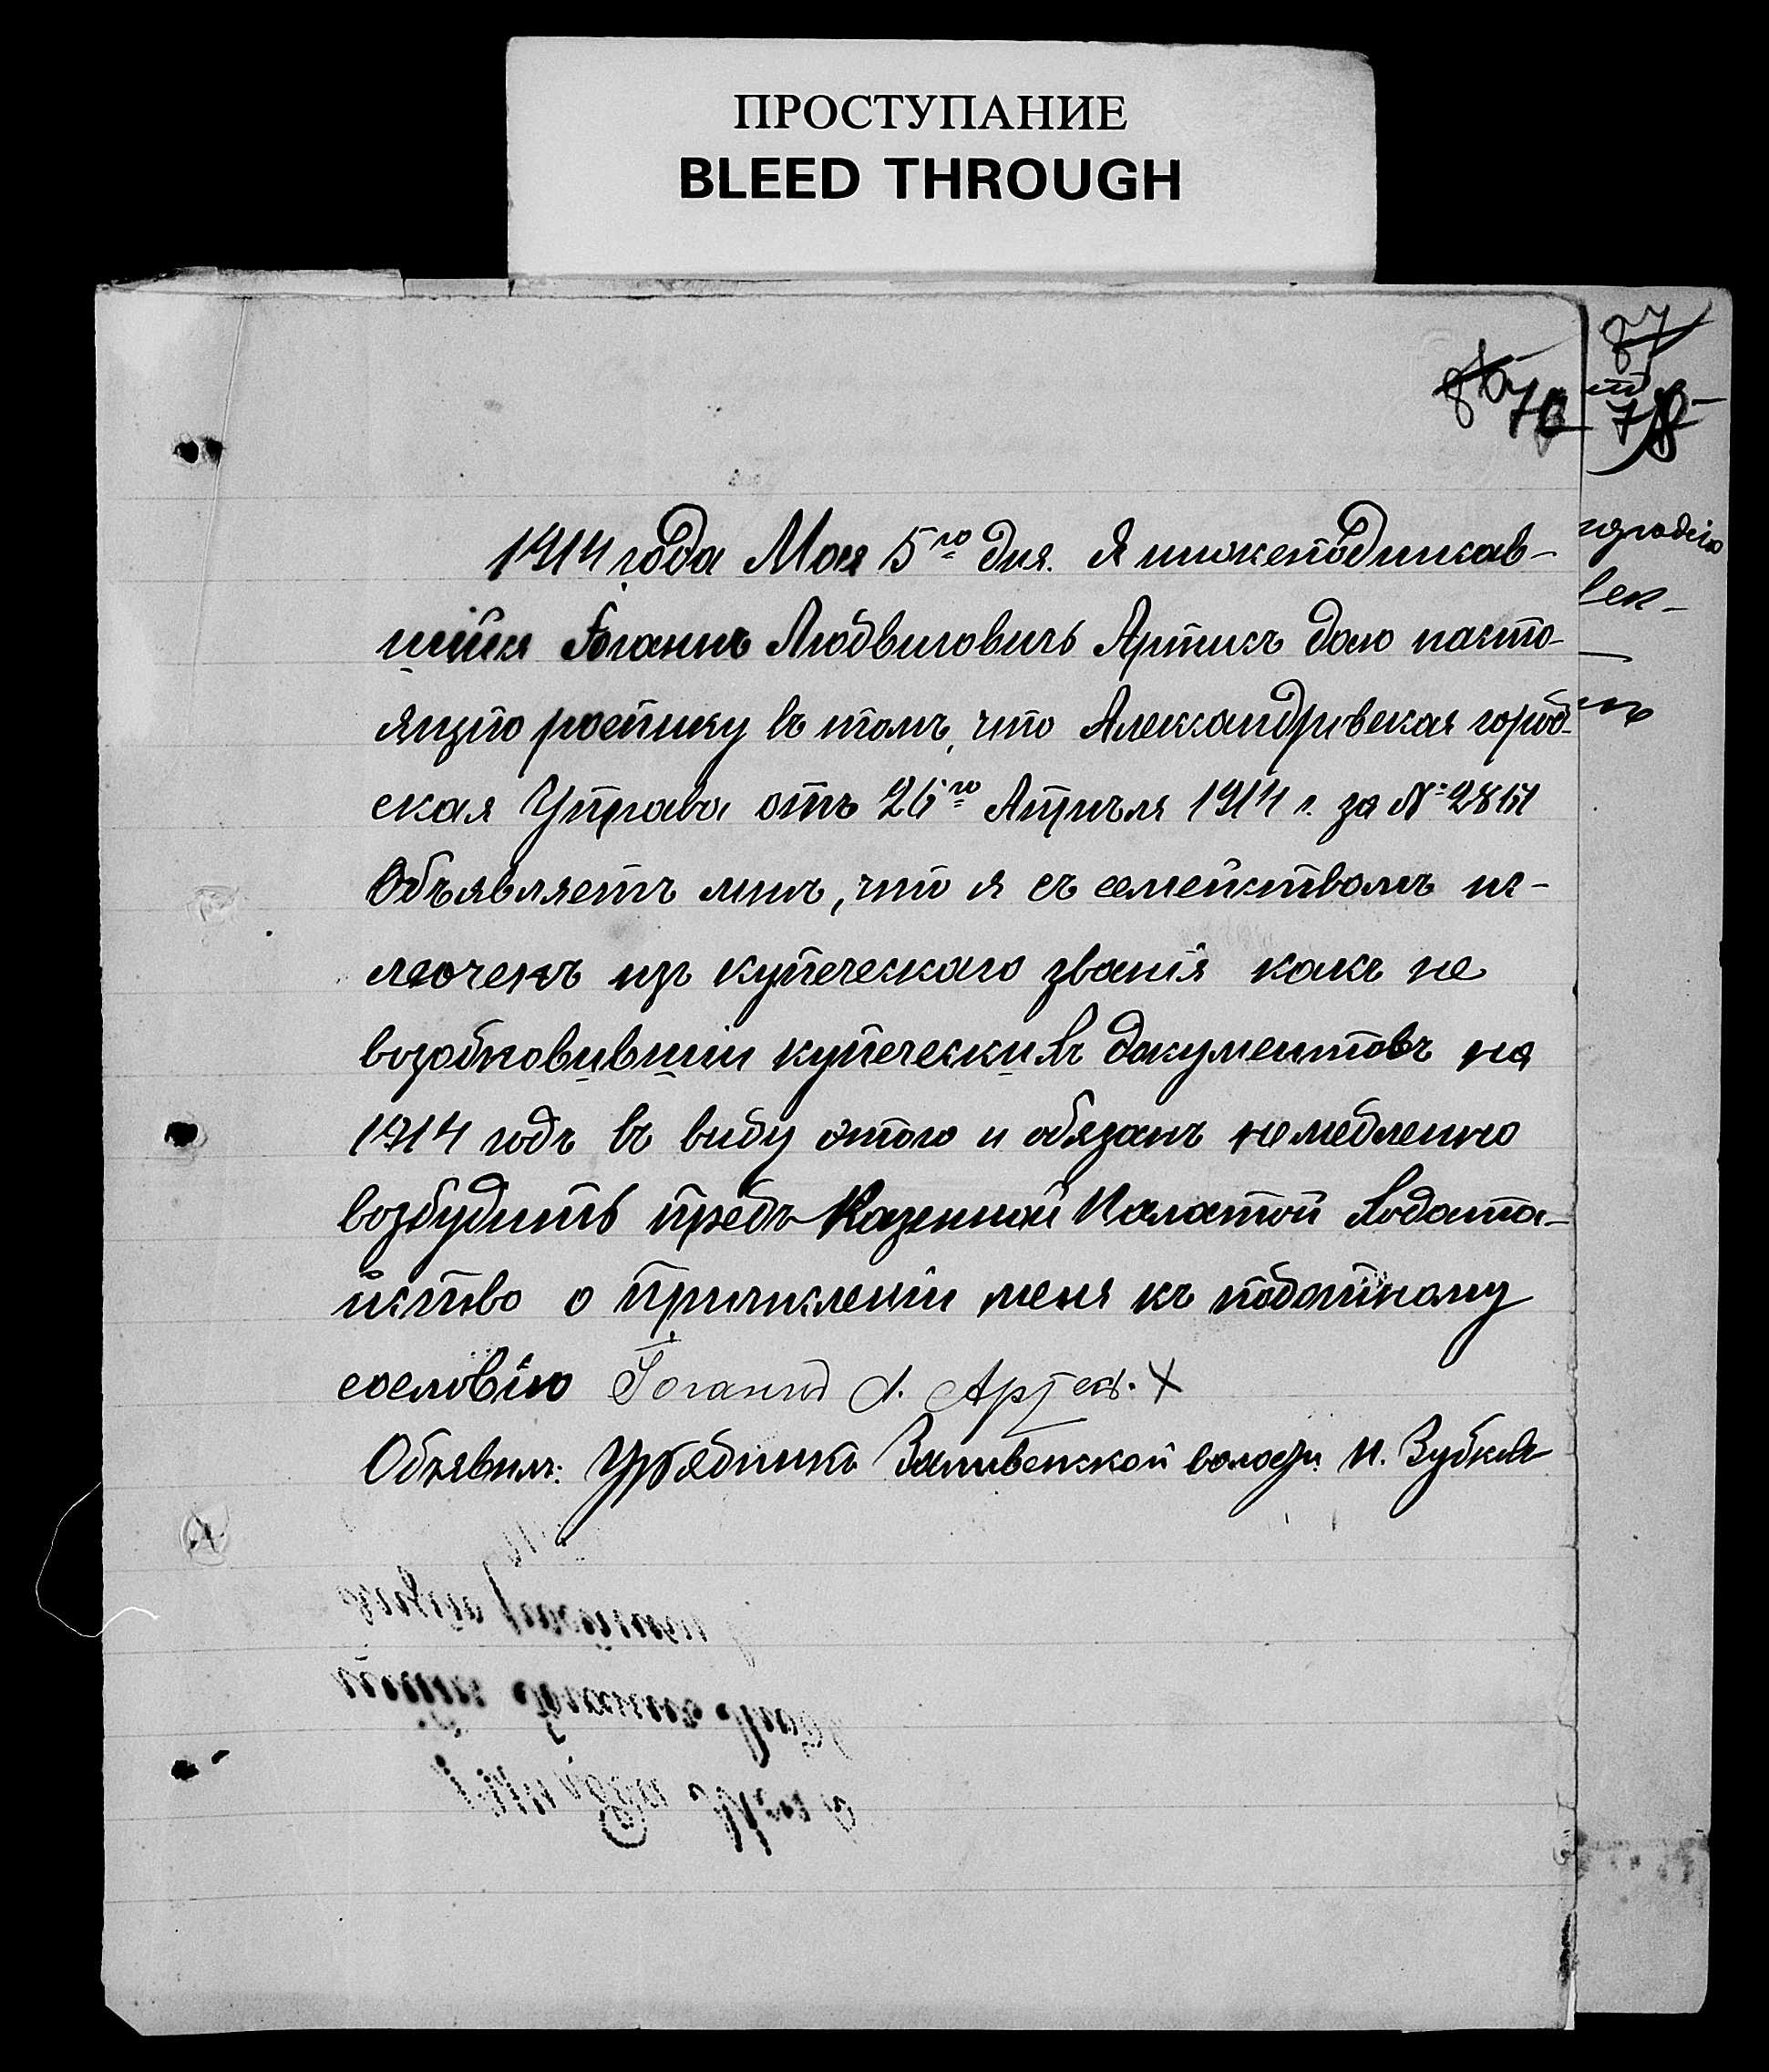 ПРОСТУПАНИЕ
BLEED THROUGH
87
86
70
78
1914 года Мая 5го дня. Я нижеподписав-
шійся Іоганнъ Людвиговичъ Артисъ даю насто-
ящую росписку въ томъ, что Александровская город-
ская Управа отъ 26го Апрѣля 1914 г. за №
Объявляетъ мнѣ, что я съ семействомъ ис-
лючонъ изъ купеческаго званія какъ не
возобновившій купеческихъ документовъ на
1914 годъ въ виду этого и обязанъ немедленно
возбудить предъ Казенной Палатой Хода­та-
йство о причисленіи меня къ податному
сословію Іоганнъ Л. X
Объявилъ: Урядникъ волости И. Зубковъ